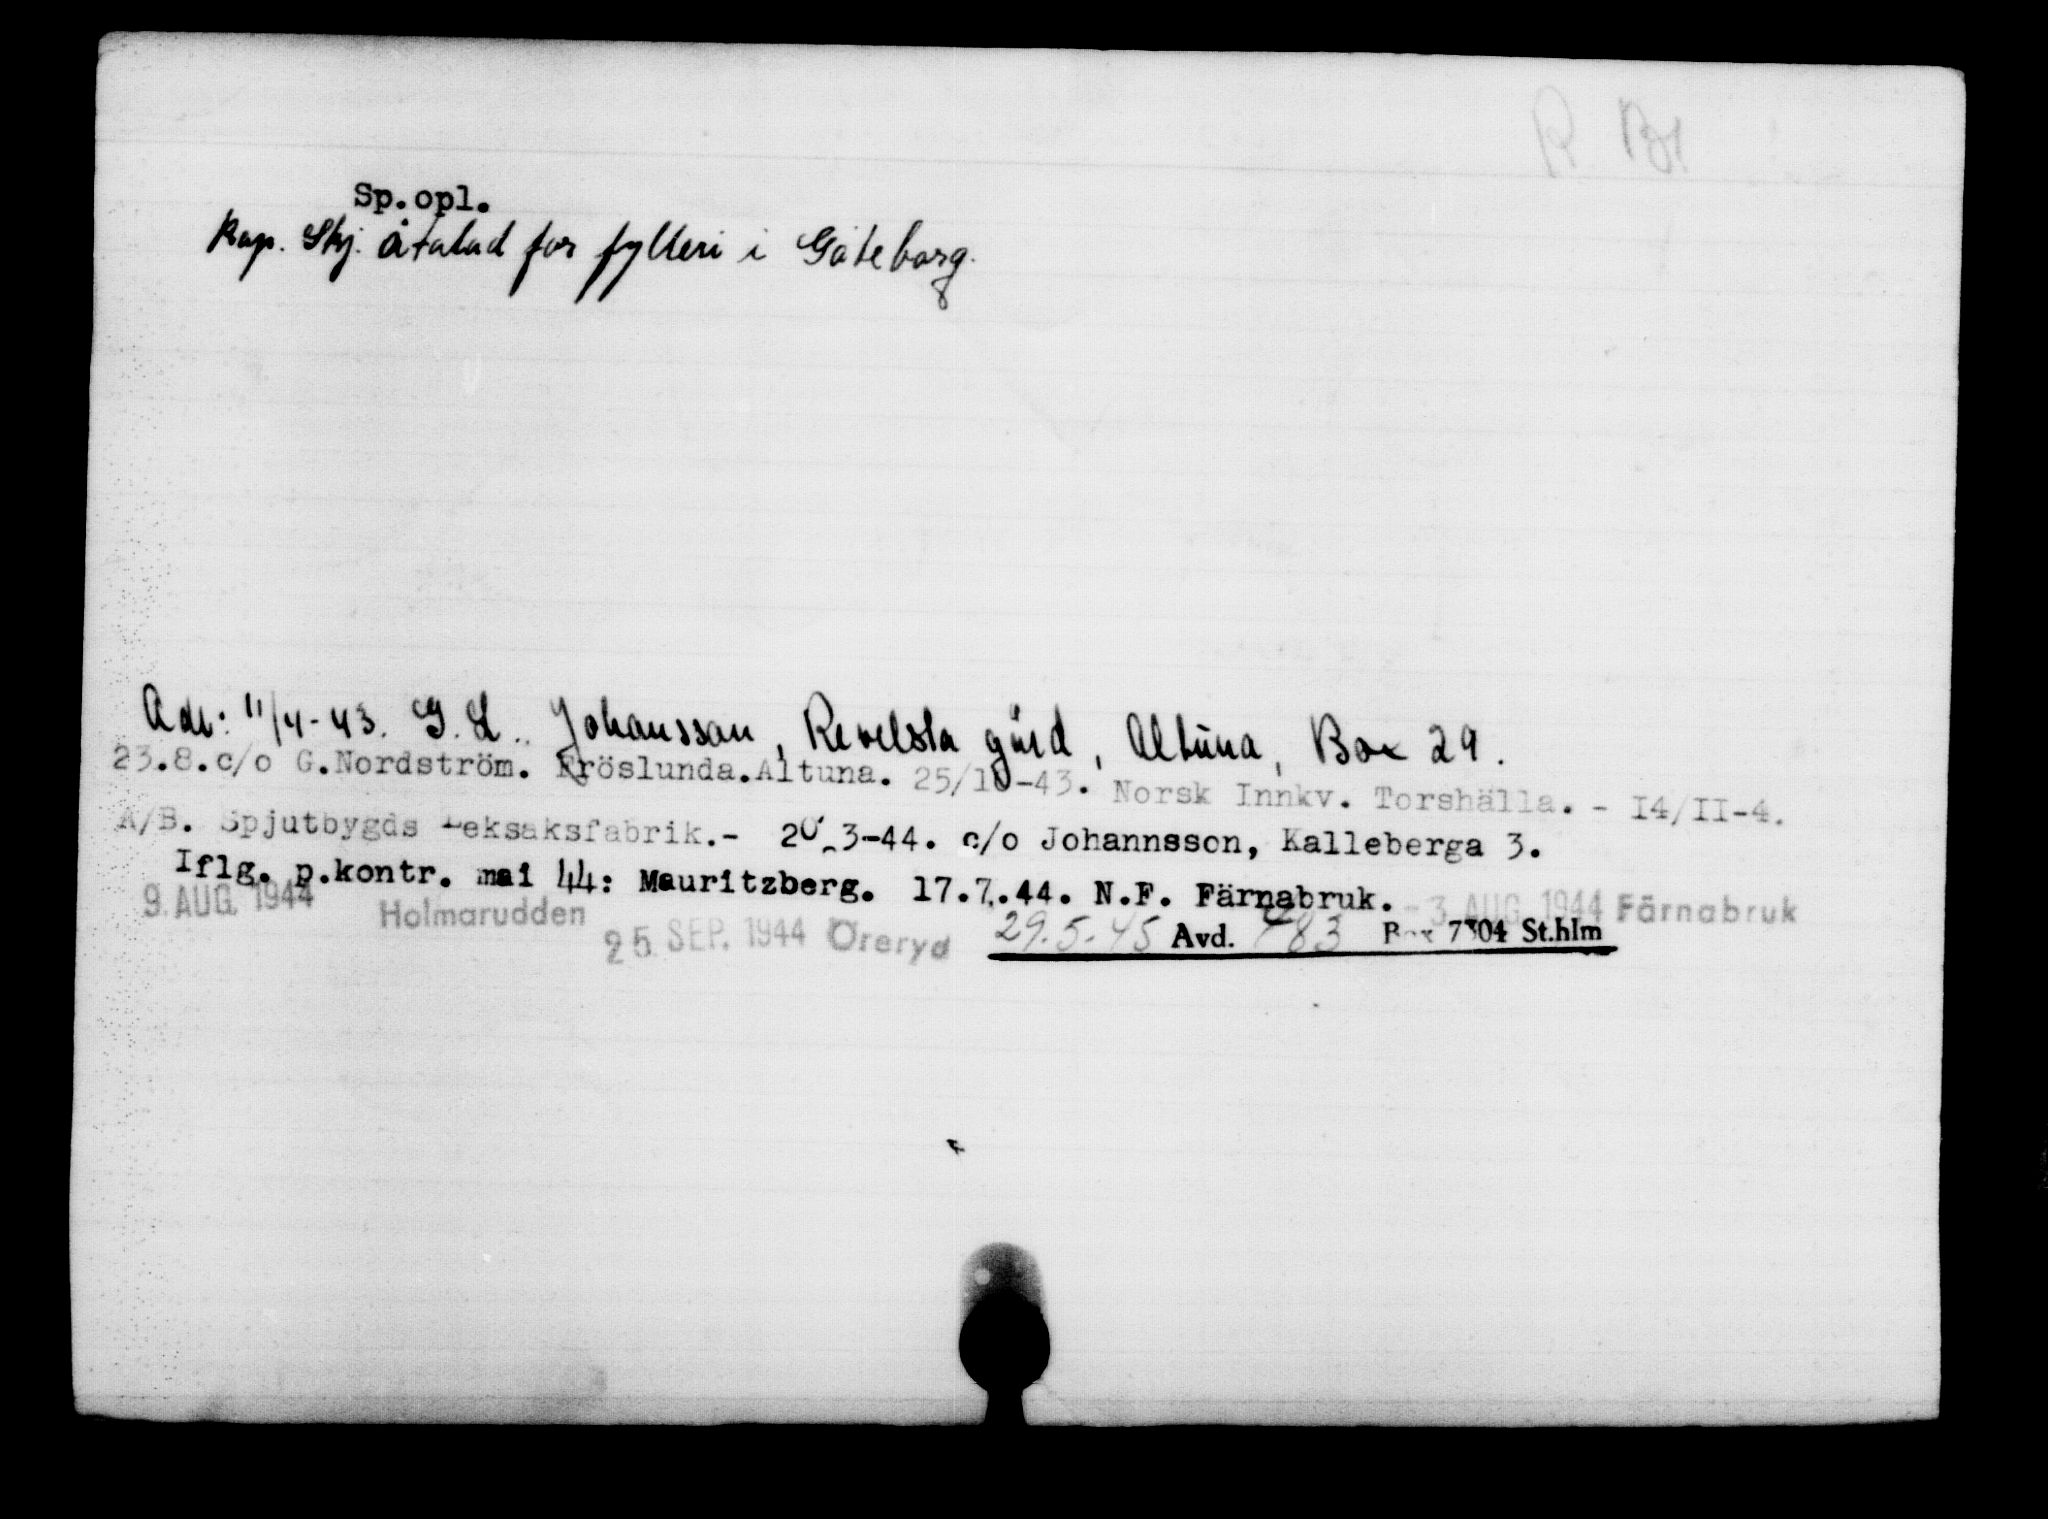 R
Sp.opl.
Rap. Skj. åtalad for fylleri i Göteborg.
Adr: 11/4-43. G. L. Johansson, Revelsta gård, Altuna, Box 29.
23.8.c/o G.Nordström. Fröslunda.Altuna. 25/10-43. Norsk Innkv. Torshälla. - I4/II-4.
A/B. Spjutbygds Leksaksfabrik.- 20/3-44. c/o Johannsson, Kalleberga 3.
Iflg. p.kontr. mai 44: Mauritzberg. 17.7.44. N.F. Färnabruk. -3 AUG. 1944 Färnabruk
9. AUG. 1944 Holmarudden 25 SEP. 1944 Öreryd 29.5.45 Avd. 783 Box 7304 St.hlm